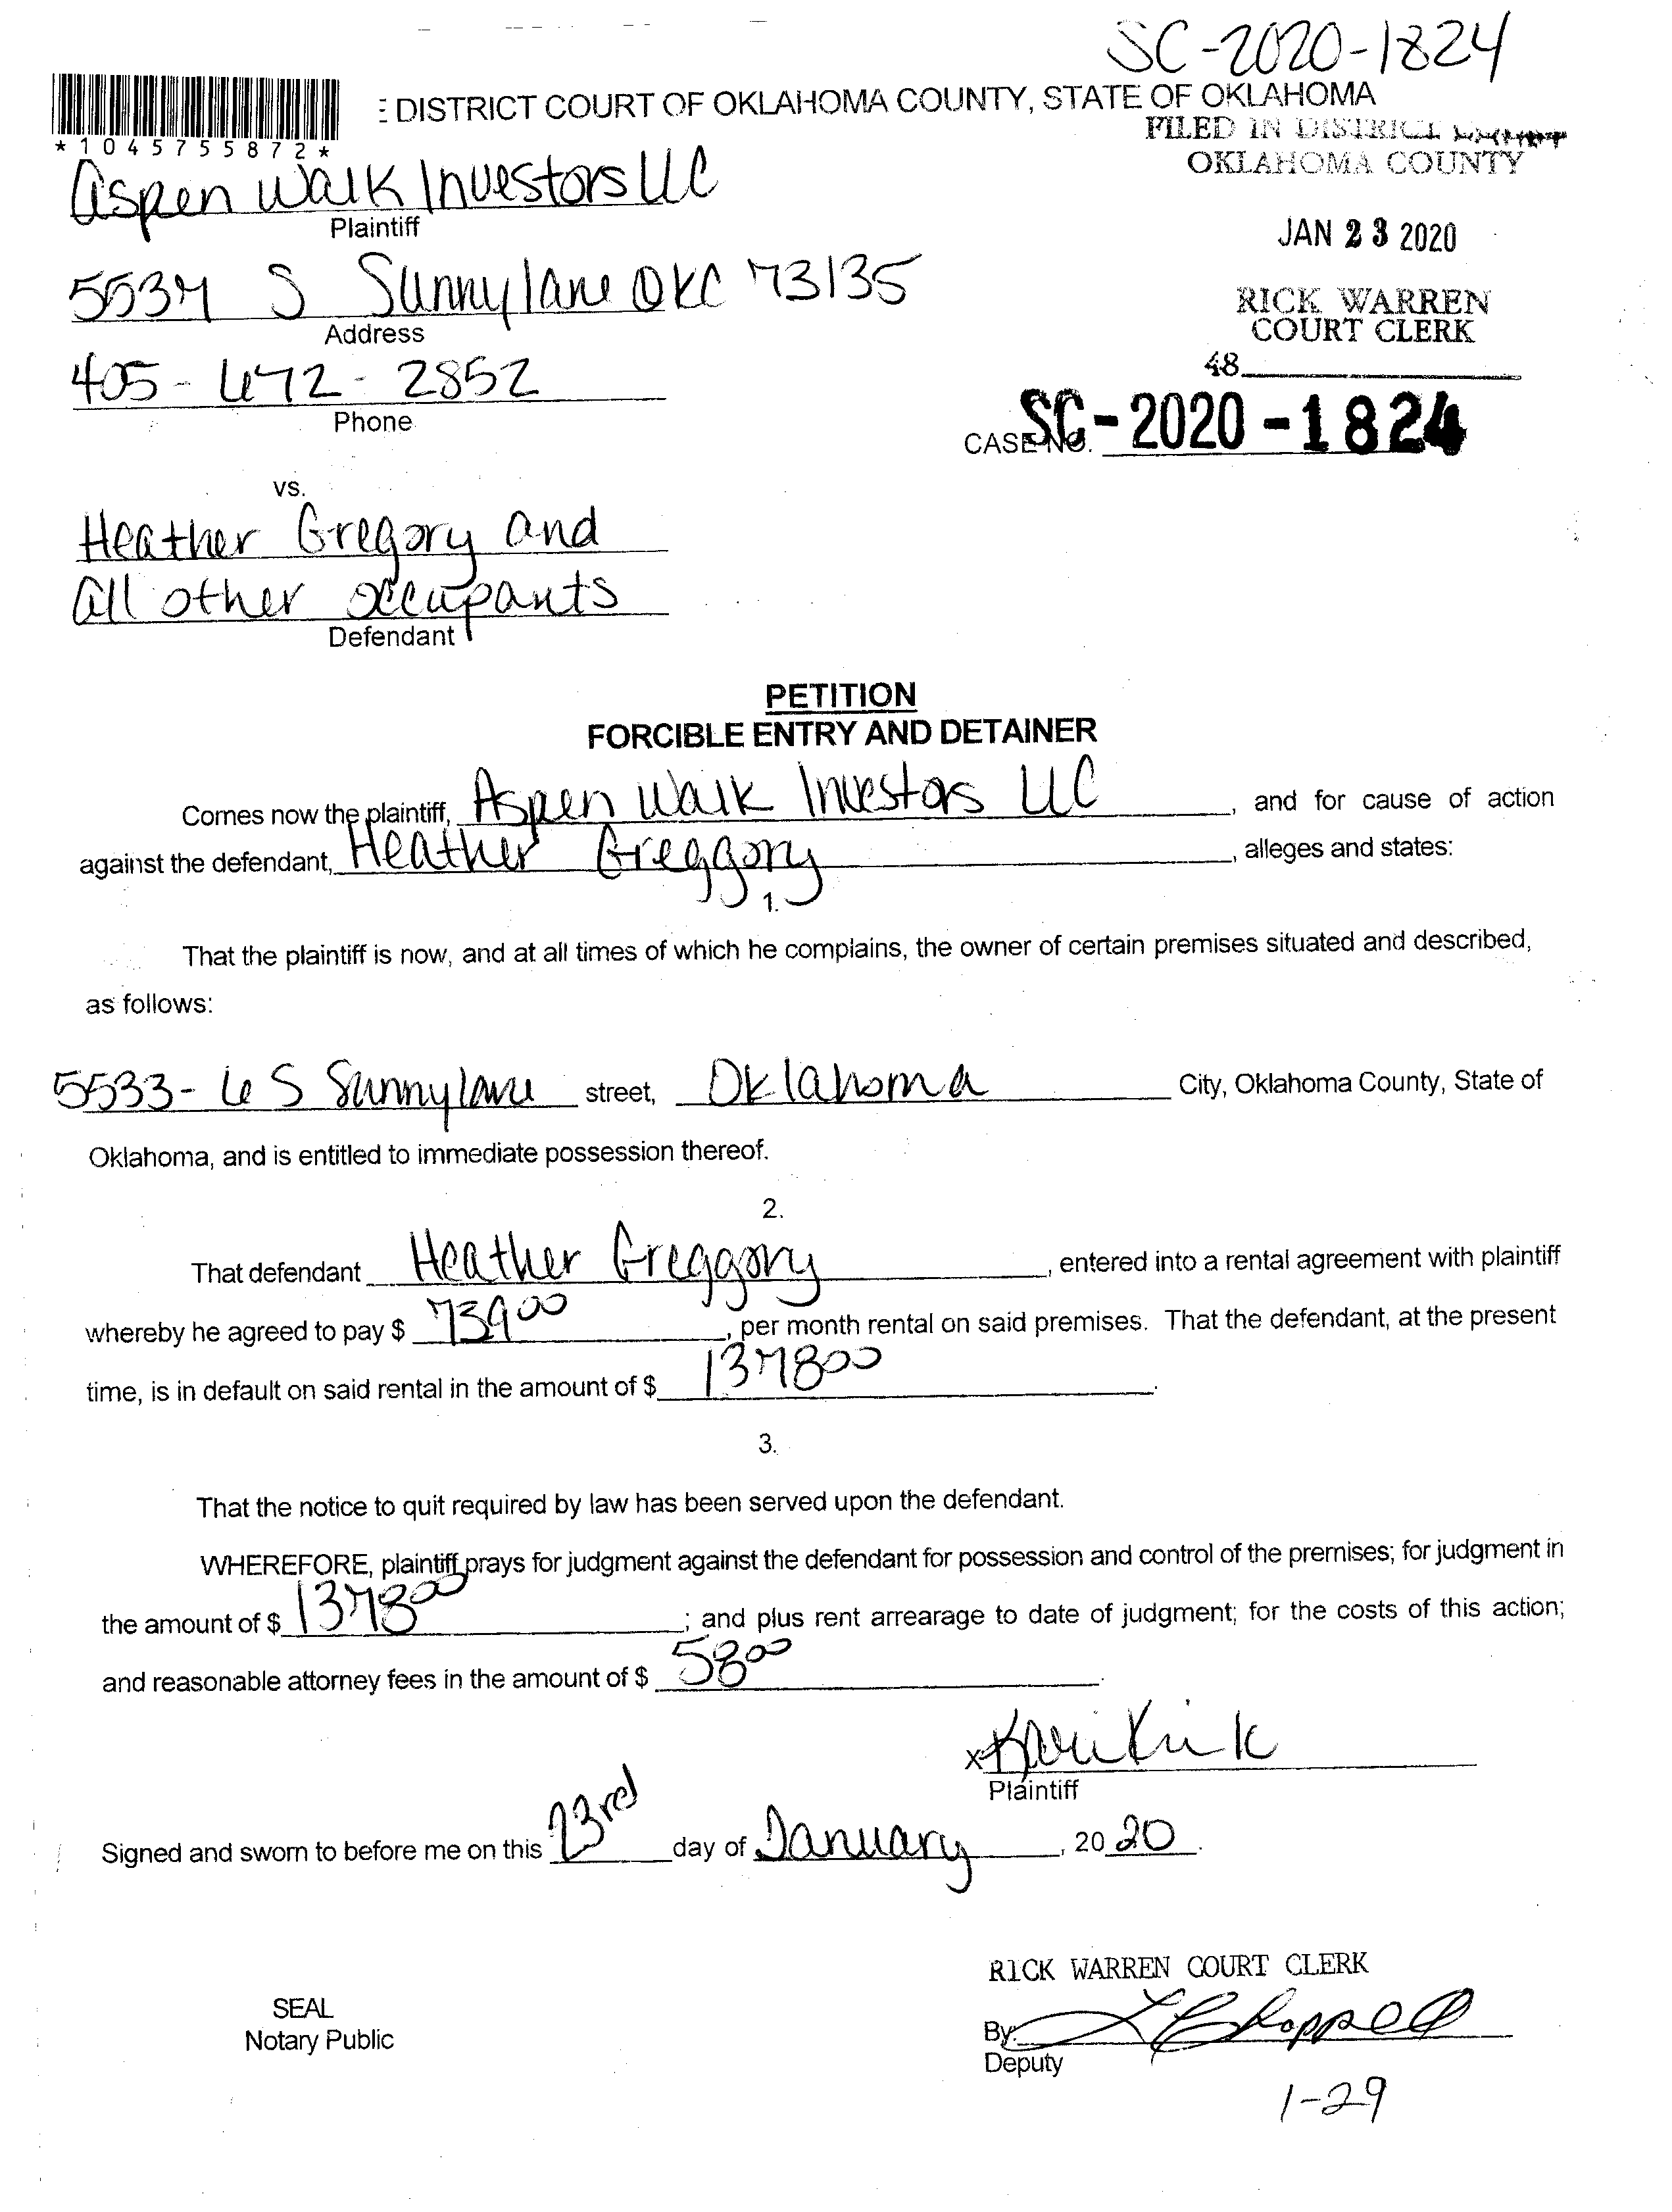 SC-2020-1824
E DISTRICT COURT OF OKLAHOMA COUNTY, STATE OF OKLAHOMA
FILED IN DISTRICT COURT
OKLAHOMA COUNTY
*1045755872*
Aspen Walk Investors LLC
Plaintiff
JAN 23 2020
5537 S Sunnylane OKC 73135
Address
RICK WARREN
COURT CLERK
405-672-2852
Phone
48
CASE NO. SC-2020-1824
vs.
Heather Gregory and
all other occupants
Defendant
PETITION
FORCIBLE ENTRY AND DETAINER
Comes now the plaintiff, Aspen Walk Investors LLC, and for cause of action
against the defendant, Heather Greggory, alleges and states:
1.
That the plaintiff is now, and at all times of which he complains, the owner of certain premises situated and described,
as follows:
5533-6 S Sunnylane street, Oklahoma City, Oklahoma County, State of
Oklahoma, and is entitled to immediate possession thereof.
2.
That defendant Heather Greggory, entered into a rental agreement with plaintiff
whereby he agreed to pay $ 739 00, per month rental on said premises. That the defendant, at the present
time, is in default on said rental in the amount of $ 1378 00.
3.
That the notice to quit required by law has been served upon the defendant.
WHEREFORE, plaintiff prays for judgment against the defendant for possession and control of the premises; for judgment in
the amount of $ 1378 00; and plus rent arrearage to date of judgment; for the costs of this action;
and reasonable attorney fees in the amount of $ 58 00.
x Kari Kirk
Plaintiff
Signed and sworn to before me on this 23rd day of January, 2020.
RICK WARREN COURT CLERK
SEAL
Notary Public
By:
Deputy
1-29